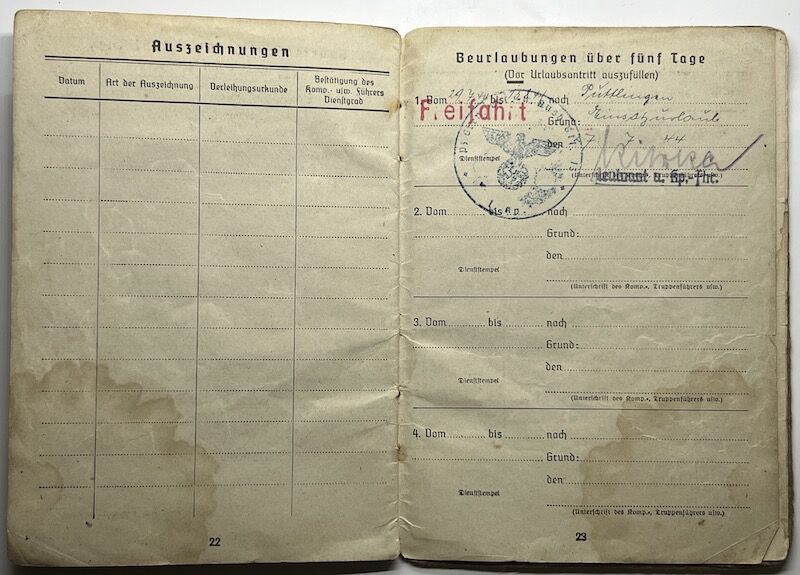 Auszeichnungen
Datum
Art der Auszeichnung
Verleihungsurkunde
Bestätigung des
Komp.- usw. Führers
Dienstgrad
22
Beurlaubungen über fünf Tage
(Vor Urlaubsantritt auszufüllen)
1. Vom bis nach Püttlingen
Freifahrt
Grund: Einsatzurlaub
den 7. 7. 44
Dienststempel
Leutnant u. Kp.-Fhr.
2. Vom bis nach
Grund:
den
Dienststempel
(Unterschrift des Komp.-, Truppenführers usw.)
3. Vom bis nach
Grund:
den
Dienststempel
(Unterschrift des Komp.-, Truppenführers usw.)
4. Vom bis nach
Grund:
den
Dienststempel
(Unterschrift des Komp.-, Truppenführers usw.)
23